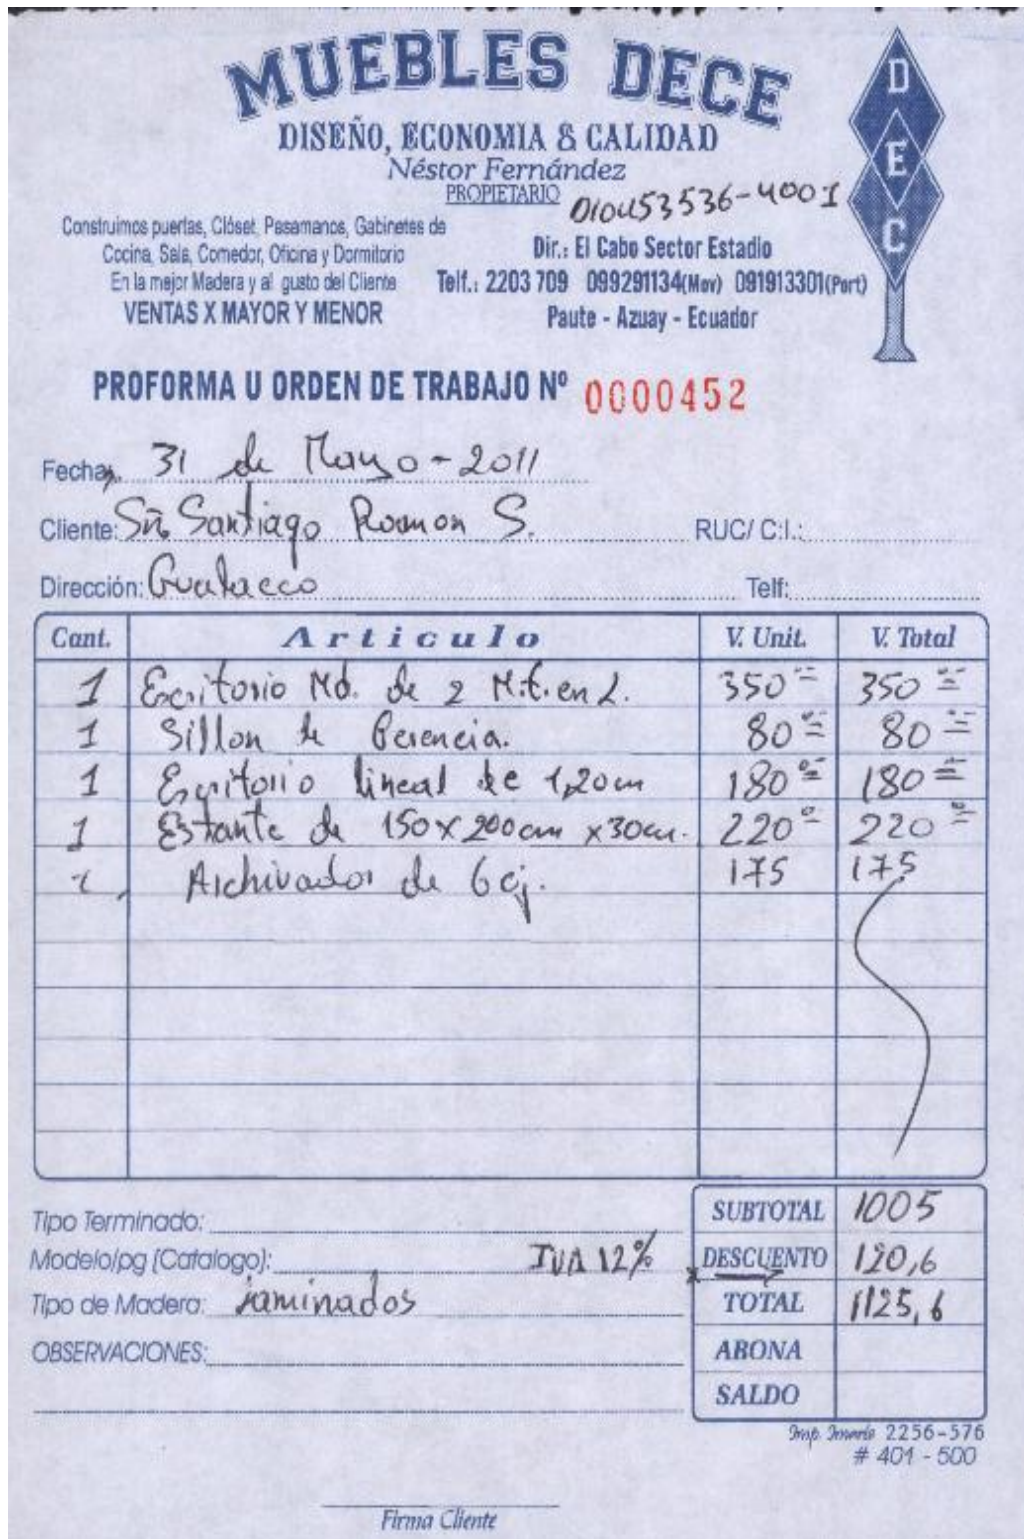 MUEBLES DECE
DISEÑO, ECONOMIA & CALIDAD
Néstor Fernández
PROPIETARIO
D
E
C
Construimos puertas, Clóset, Pasamanos, Gabinetes de
Cocina, Sala, Comedor, Oficina y Dormitorio
En la mejor Madera y al gusto del Cliente
VENTAS X MAYOR Y MENOR
Dir.: El Cabo Sector Estadio
Telf.: 2203 709 099291134(Mov) 091913301(Port)
Paute - Azuay - Ecuador
PROFORMA U ORDEN DE TRABAJO Nº 0000452
Fecha: 31 de Marzo - 2011
Cliente: Santiago Roman S. RUC/ C:I.:
Dirección: Telf:
Cant. Articulo V. Unit. V. Total
1 Escritorio Md. de 2 Mt. en L. 350 00 350 00
1 Sillon de Gerencia. 80 00 80 00
1 Escritorio lineal de 1,20cm 180 00 180 00
1 Estante de 150 x 200cm x 30cm. 220 00 220 00
1 Archivador de 6 cj. 175 175
Tipo Terminado: SUBTOTAL 1005
Modelo/pg (Catalogo): IVA 12% DESCUENTO 120,6
Tipo de Madera: laminados TOTAL 1125,6
OBSERVACIONES: ABONA
SALDO
Imp. 2256-576
# 401 - 500
Firma Cliente